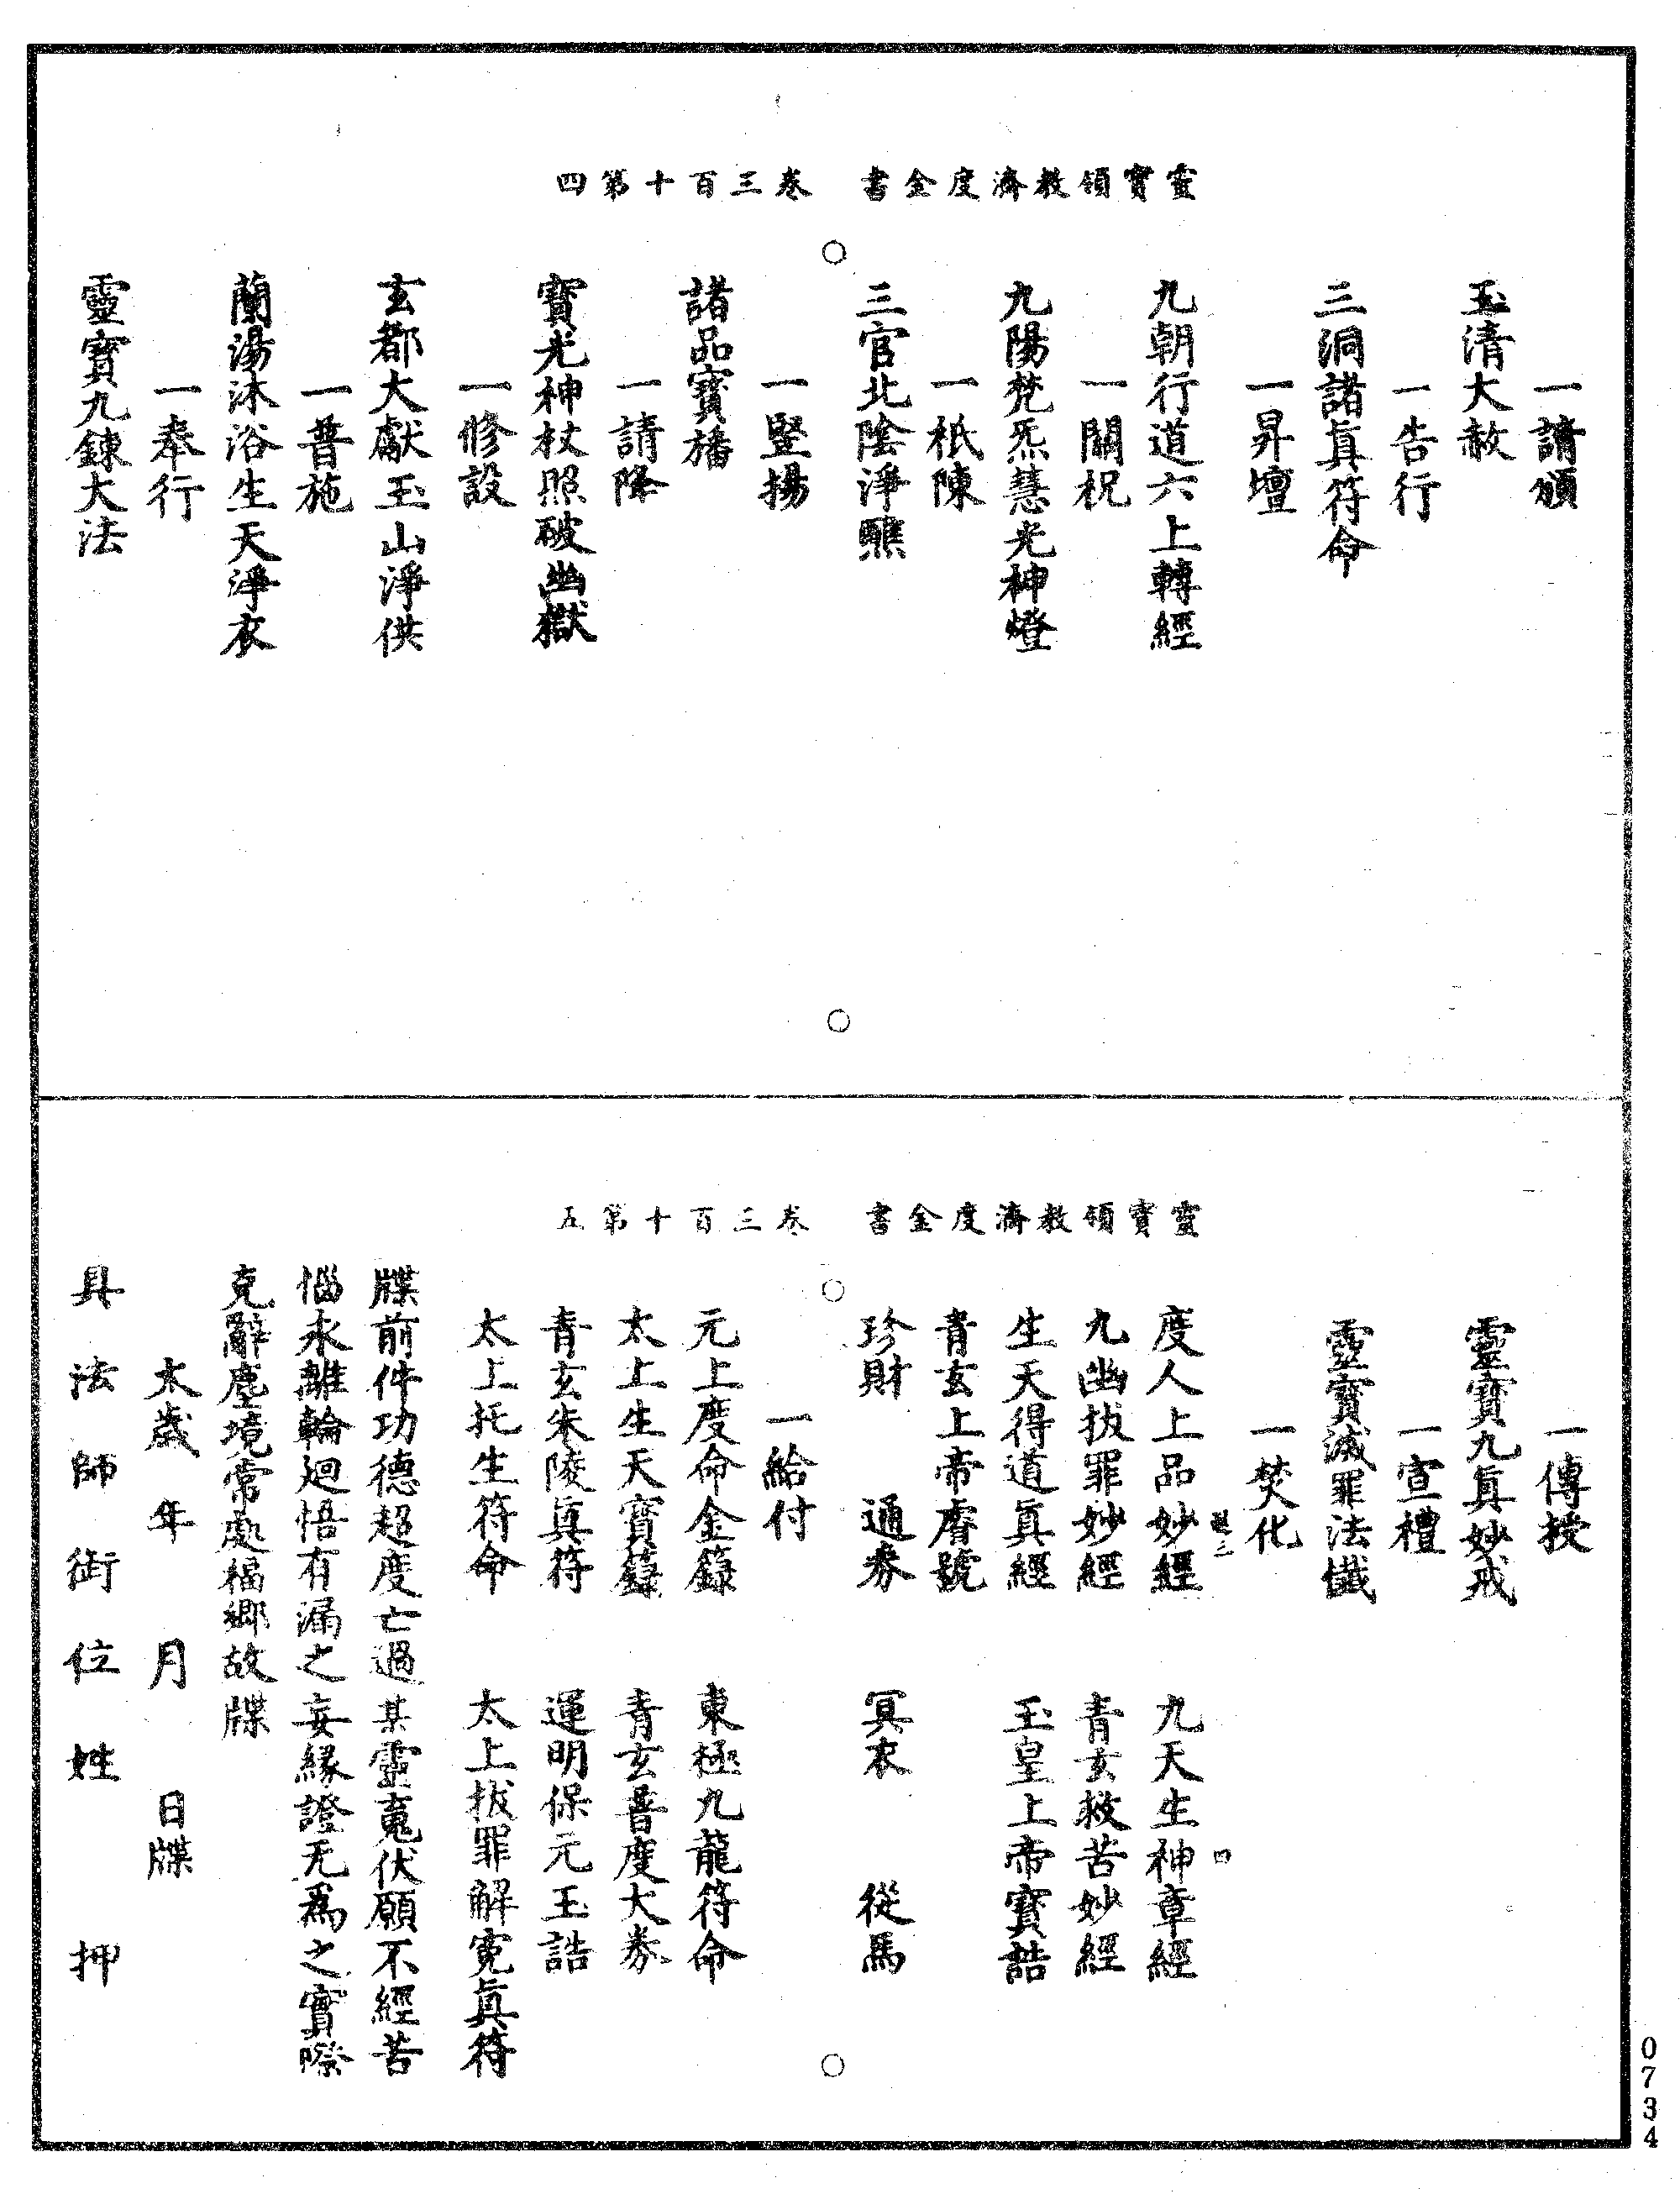 靈寶領教濟度金書　卷三百十第四
一請頒
玉清大赦
一告行
三洞諸眞符命
一昇壇
九朝行道六上轉經
一關祝
九陽梵炁慧光神燈
一祇陳
三官北陰淨醮
一豎揚
諸品寶旛
一請降
寶光神杖照破幽獄
一修設
玄都大獻玉山淨供
一普施
蘭湯沐浴生天淨衣
一奉行
靈寶九鍊大法
靈寶領教濟度金書　卷三百十第五
一傳授
靈寶九眞妙戒
一宣禮
靈寶滅罪法懺
一焚化
三　四
度人上品妙經　九天生神章經
九幽拔罪妙經　青玄救苦妙經
生天得道眞經　玉皇上帝寶誥
青玄上帝膺號
珍財　通券　冥衣　從馬
一給付
元上度命金籙　東極九龍符命
太上生天寶籙　青玄普度大券
青玄朱陵眞符　運明保元玉誥
太上托生符命　太上拔罪解寃眞符
牒前件功德超度亡過某靈䰟伏願不經苦
惱永離輪廻悟有漏之妄緣證无爲之實際
克辭塵境常處福鄉故牒
太歲　年　月　日牒
具法師銜位姓　押
0734